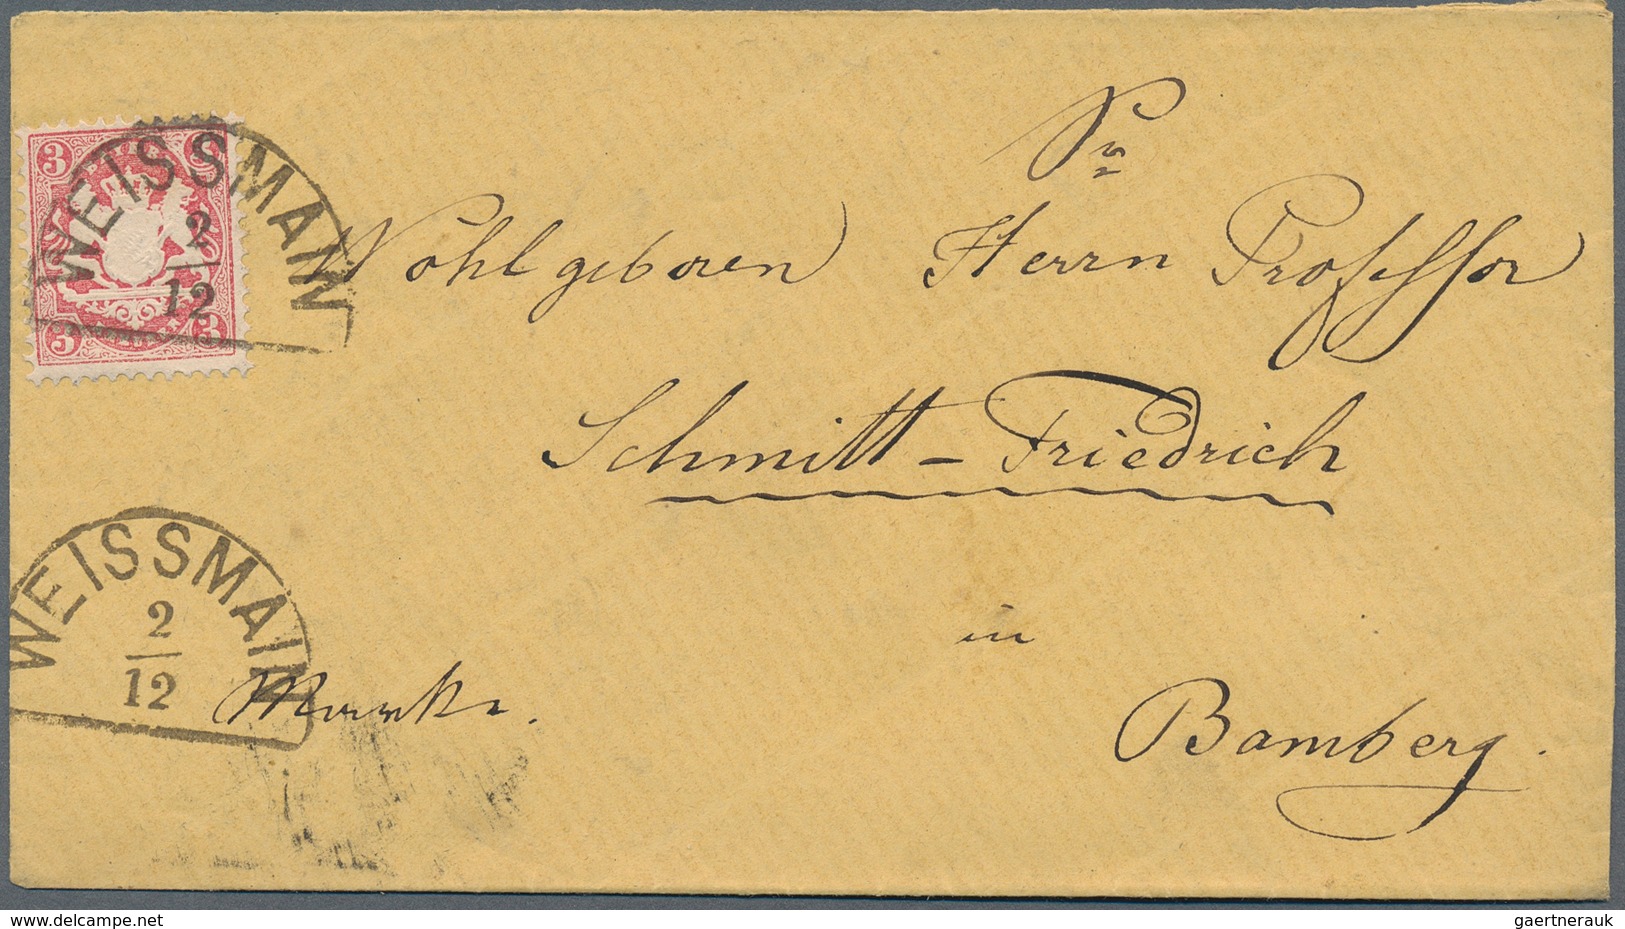 3 3
WEISSMAIN
2
12
3 3
Sr
Wohlgeboren Herrn Professor
Schmitt-Friedrich
in
Bamberg.
WEISSMAIN
2
12
www.delcampe.net
gaertnerauk